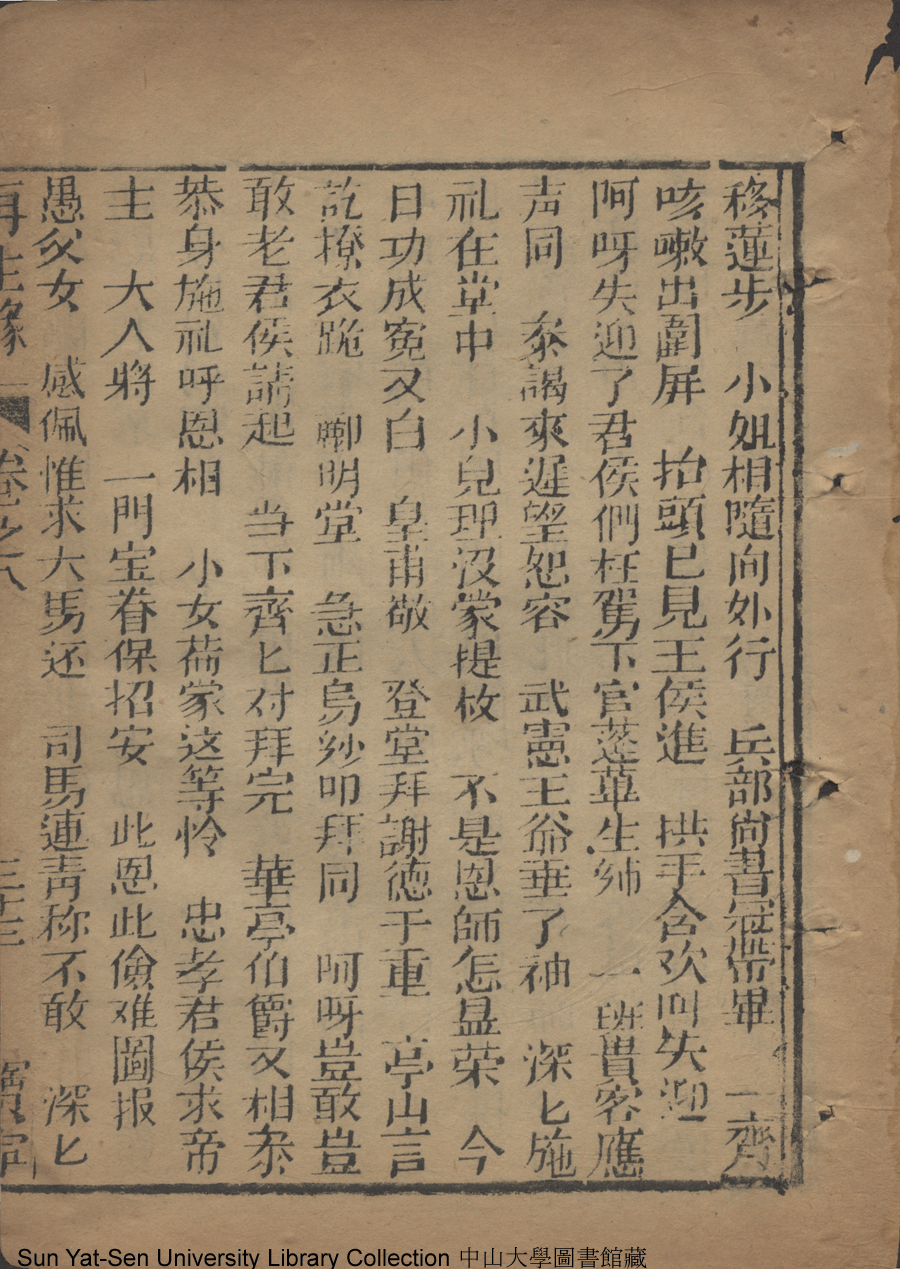 移蓮步　小姐相隨向外行　兵部尙書冠帶畢　一齊
咳嗽出圍屏　抬頭已見王侯進　拱手含欢叫失迎
阿呀失迎了君侯們枉駕下官蓬蓽生綈　一班貴客應
声同　叅謁來遲望恕容　武憲王爺垂了袖　深匕施
礼在堂中　小兒理没蒙提枚　不是恩師怎显荣　今
日功成寃又白　皇甫敬　登堂拜謝德于重　亭山言
訖撩衣跪　酈明堂　急正烏紗叩拜同　呵呀豈敢豈
敢老君侯請起　当下齊匕对拜完　華亭伯爵又相叅
恭身施礼呼恩相　小女荷蒙这等怜　忠孝君侯求帝
主　大人將　一門宝眷保招安　此恩此儉难圖报
愚父女　感佩惟求犬馬还　司馬連青称不敢　深匕
再生緣　卷之八　三十三　寳寧
Sun Yat-Sen University Library Collection 中山大學圖書館藏